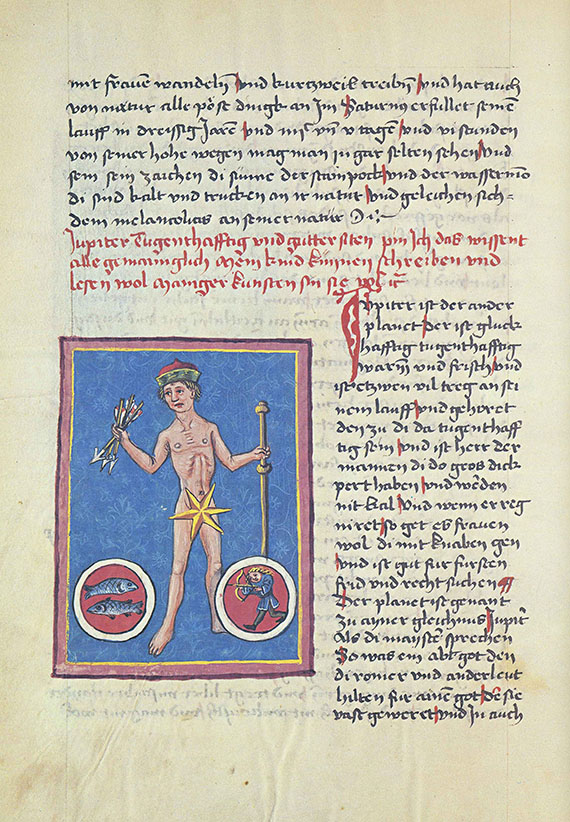 mit frawen wandeln und kurtzweil treibn und hat auch
von natur alle pöse dingk an Im Saturnus erfullet seinen
lauff in dreissig Jaren und mit v tagen und vi stunden
von seiner hohe wegen mag man in gar selten sehen und
sein sein zaichen di sunne der stainpock und der wasserman
di sind kalt und trucken an ir natur und geleichen sich
dem melancolicus an seiner natur
Jupiter Tugenthafftig und gutter siten pin Ich das wissent
alle gemainiglich Mein kind kunnen schreiben und
lesen wol Maniger kunsten sin sie vol
Jupiter ist der ander
planet der ist gluck
hafftig tugenthafftig
warm und frisch und
ist etzwen vil treg an sei
nem lauff und gehoret
den zu di da tugenthaff
tig sein und ist herr der
mannen di do gros dick
pert haben und werden
nit kal und wenn er reg
niret so get es frawen
wol di mit knaben gen
und ist gut fur fursten
frid und recht suchen
Der planet ist genant
zu ainer gleichnus Jupiter
als di maister sprechen
So was ein abtgot den
di romer und ander leut
hilten fur ainen got der sie
vast geweret und In auch